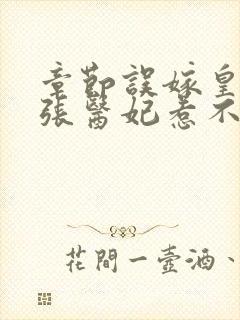 章節誤嫁皇
張醫妃惹不
花間一壺酒、